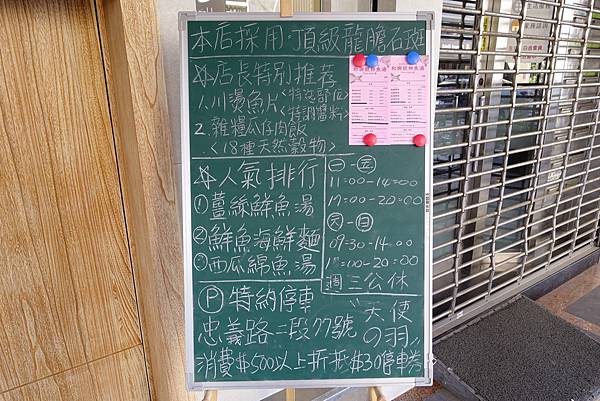 本店採用・頂級龍膽石斑
店長特別推荐
1.川燙魚片<特殊部位>
<特調醬料>
2.雜糧瓜仔肉飯
<18種天然穀物>
人氣排行
①薑絲鮮魚湯
②鮮魚海鮮麵
西瓜綿魚湯
㊀-㊄
11:00-14:00
17:00-20:00
-㊐
09:30-14:00
:00-20:00
週三公休
Ⓟ特納停車
忠義路二段77號
"天使の羽"
消費$500以上折抵$30停車券